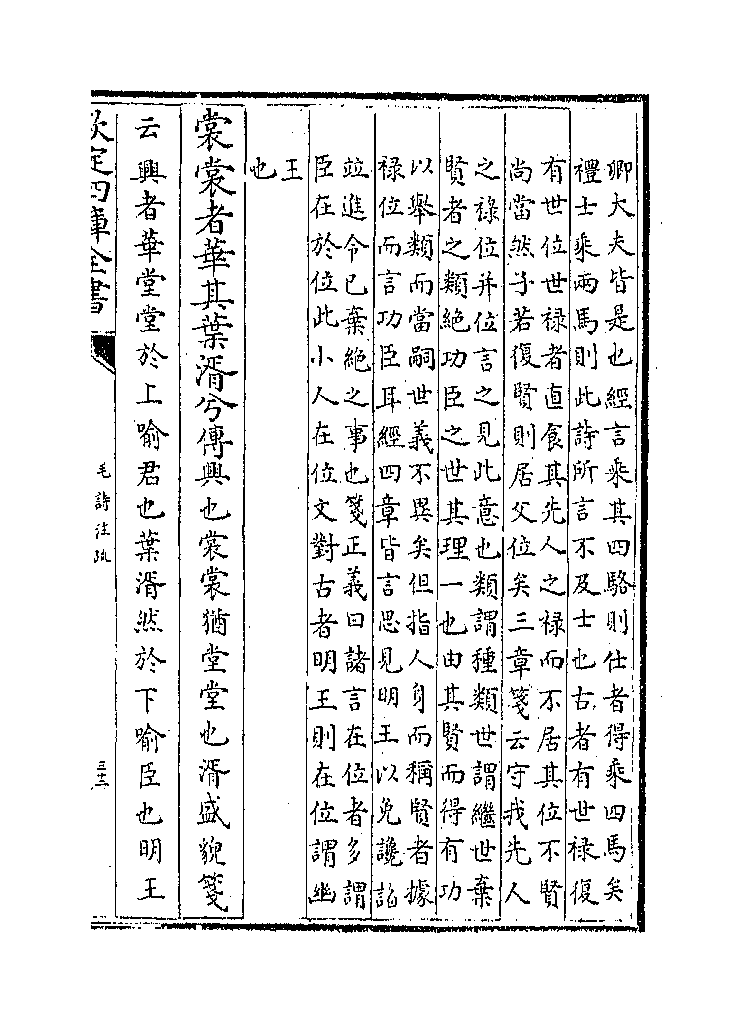 卿大夫皆是也經言乘其四駱則仕者得乘四馬矣
禮士乘兩馬則此詩所言不及士也古者有世祿復
有世位世禄者直食其先人之禄而不居其位不賢
尚當然子若復賢則居父位矣三章箋云守我先人
之祿位并位言之見此意也類謂種類世謂繼世棄
賢者之類絶功臣之世其理一也由其賢而得有功
以舉類而當嗣世義不異矣但指人身而稱賢者據
禄位而言功臣耳經四章皆言思見明王以免讒諂
竝進令已棄絶之事也箋正義曰諸言在位者多謂
臣在於位此小人在位文對古者明王則在位謂幽
王
也
裳裳者華其葉湑兮傳興也裳裳猶堂堂也湑盛貌箋
云興者華堂堂於上喻君也葉湑然於下喻臣也明王
欽定四庫全書
毛詩注疏
三十二